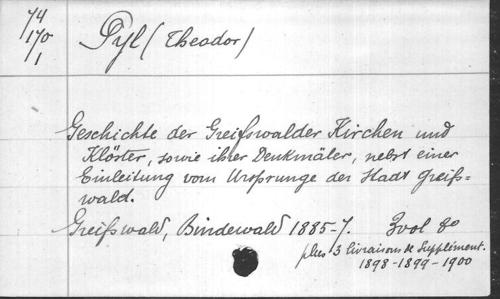 74
170
1
Pyl (Theodor)
Geschichte der Greifswalder Kirchen und
Klöster, sowie ihrer Denkmäler, nebst einer
Einleitung vom Ursprunge der Stadt Greifs-
wald.
Greifswald, Bindewald 1885-7. 3vol 8o
plus 3 livraisons de Supplément.
1898-1899-1900